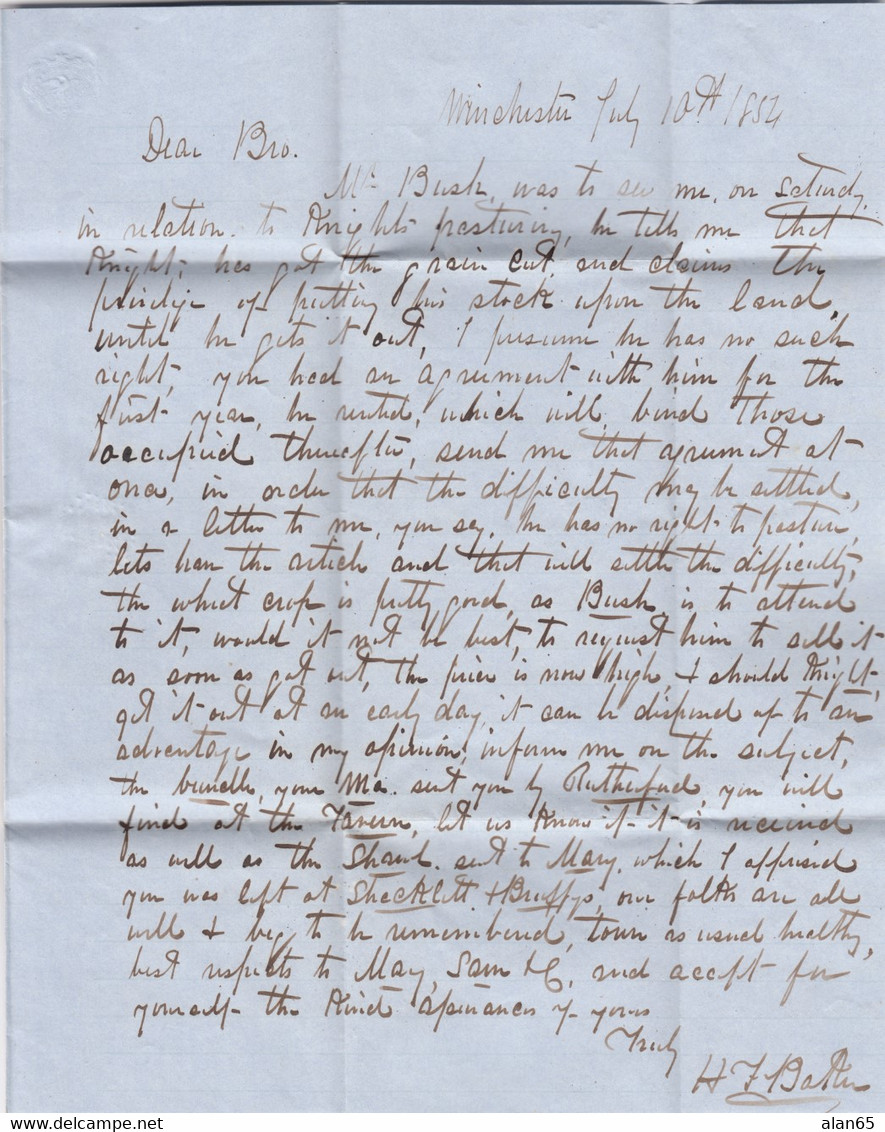 Winchester July 10th 1854
Dear Bro.
Mr Bush, was to see me, on Saturdy,
in relation to Knights pasturing, he tells me that
Knight, has got the grain cut, and claims the
privilige of putting his stock upon the land,
until he gets it out, I presume he has no such
right, you had an agreement with him for the
first year, he rented, which will bind those
occupied thereafter, send me that agreement at
once, in order that the difficulty may be settled,
in a letter to me, you say, he has no right to pasture,
lets have the article and that will settle the difficulty,
the wheat crop is pretty good, as Bush, is to attend
to it, would it not be best, to request him to sell it
as soon as got out, the price is now high, & should Knight,
get it out at an early day, it can be disposed of to an
advantage in my opinion, inform me on the subject,
the bundle, your Ma. sent you by Rutherford, you will
find at the Tavern, let us know if it is received
as well as the Shawl. sent to Mary, which I apprised
you was left at & our folks are all
well & beg to be remembered, town as usual healthy,
best respects to Mary, Sam &C, and accept for
yourself the kind of yours
Truly
H F Baker
alan65